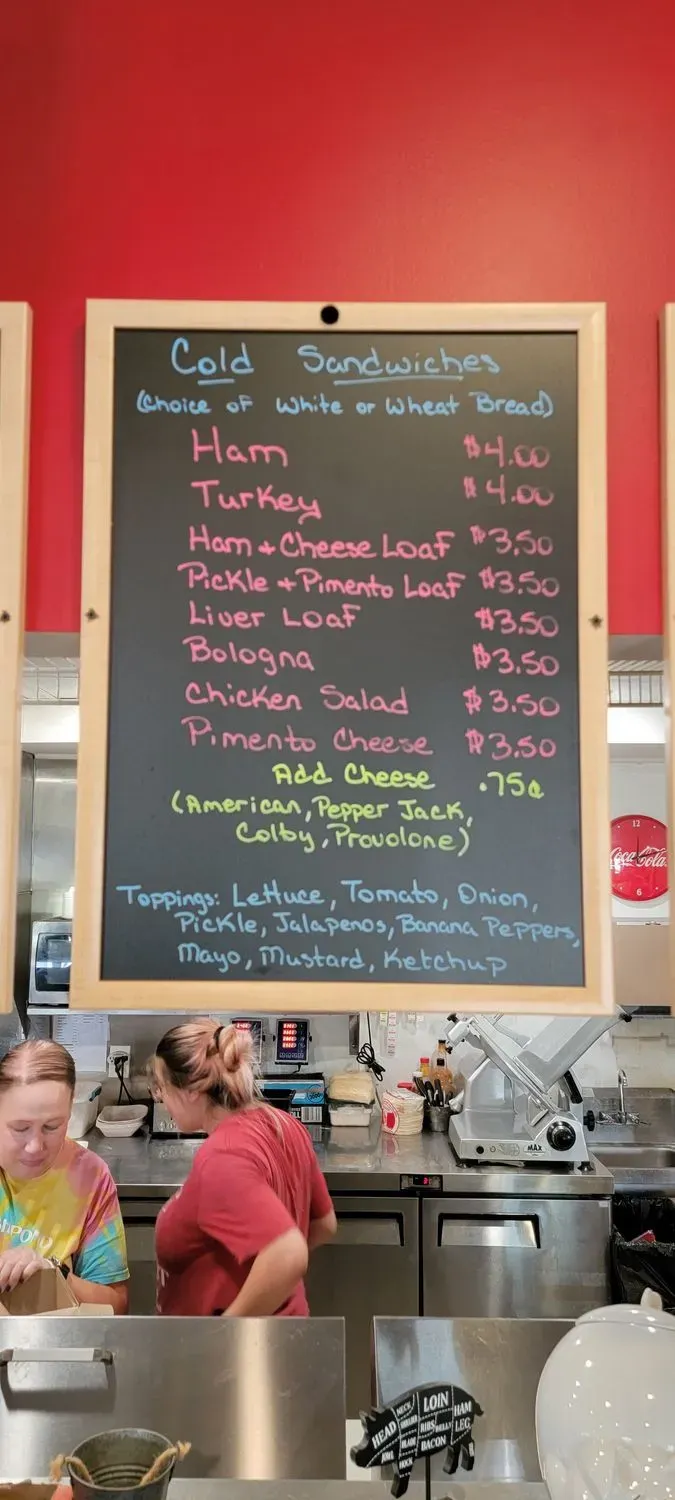 Cold Sandwiches
(Choice of White or Wheat Bread)
Ham $4.00
Turkey $4.00
Ham + Cheese Loaf $3.50
Pickle + Pimento Loaf $3.50
Liver Loaf $3.50
Bologna $3.50
Chicken Salad $3.50
Pimento Cheese $3.50
Add Cheese .75¢
(American, Pepper Jack,
Colby, Provolone)
Toppings: Lettuce, Tomato, Onion,
Pickle, Jalapenos, Banana Peppers,
Mayo, Mustard, Ketchup
12
Coca-Cola
6
MAX
HEAD
NECK
LOIN
HAM
LEG
RIBS
BELLY
BLADE
BACON
JOWL
HOCK